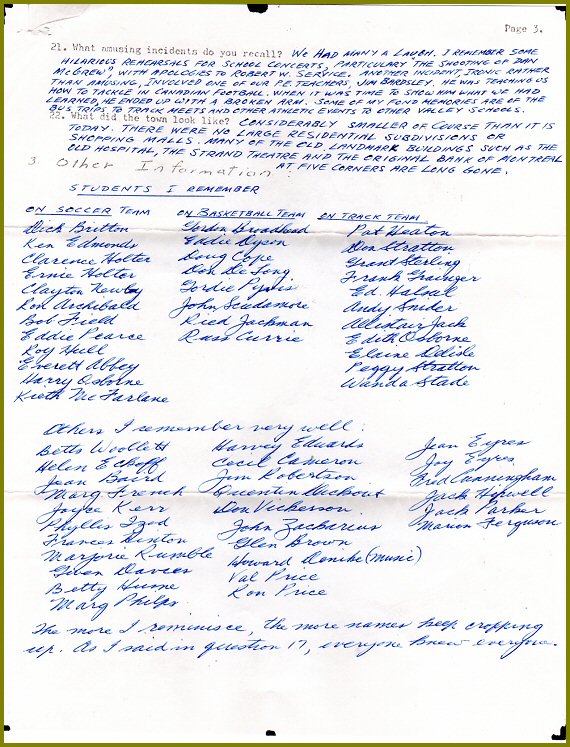 Page 3.
21. What amusing incidents do you recall? WE HAD MANY A LAUGH. I REMEMBER SOME
HILARIOUS REHEARSALS FOR SCHOOL CONCERTS, PARTICULARLY THE SHOOTING OF DAN
McGREW", WITH APOLOGIES TO ROBERT W. SERVICE. ANOTHER INCIDENT, IRONIC RATHER
THAN AMUSING, INVOLVED ONE OF OUR P.E. TEACHERS, JIM BARDSLEY. HE WAS TEACHING US
HOW TO TACKLE IN CANADIAN FOOTBALL. WHEN IT WAS TIME TO SHOW HIM WHAT WE HAD
LEARNED, HE ENDED UP WITH A BROKEN ARM. SOME OF MY FOND MEMORIES ARE OF THE
BUS TRIPS TO TRACK MEETS AND OTHER ATHLETIC EVENTS TO OTHER VALLEY SCHOOLS.
22. What did the town look like? CONSIDERABLY SMALLER OF COURSE THAN IT IS
TODAY. THERE WERE NO LARGE RESIDENTIAL SUBDIVISIONS OR
SHOPPING MALLS. MANY OF THE OLD, LANDMARK BUILDINGS SUCH AS THE
OLD HOSPITAL, THE STRAND THEATRE AND THE ORIGINAL BANK OF MONTREAL
AT FIVE CORNERS ARE LONG GONE.
3 Other Information
STUDENTS I REMEMBER
ON SOCCER TEAM
Dick Britton
Ken Edmonds
Clarence Holter
Ernie Holter
Clayton Newby
Ron Archibald
Bob Field
Eddie Pearce
Roy Hill
Everett Abbey
Harry Osborne
Kieth McFarlane
ON BASKETBALL TEAM
Gordon Broadhead
Eddie Dyson
Doug Cope
Don De Jong
Gordie
John Scudamore
Ried Jackman
Russ Currie
ON TRACK TEAM
Pat Heaton
Don Stratton
Grant Sterling
Frank Grainger
Ed. Halsal
Andy Snider
Allistair Jack
Edith Osborne
Elaine Delisle
Peggy Stratton
Wanda Stade
Others I remember very well:
Betts Woollett
Helen Eckhoff
Jean Baird
Marg French
Joyce Kerr
Phyllis Izod
Frances Denton
Marjorie Rumble
Gwen Davies
Betty Hume
Marg Philps
Harvey Edwards
Cecil Cameron
Jim Robertson
Quentin
Don Vickerson
John Zacharius
Glen Brown
Howard Denike (music)
Val Price
Ron Price
Jean Eyres
Joy Eyres
Fred Cunningham
Jack Hipwell
Jack Parker
Marion Ferguson
The more I reminisce, the more names keep cropping
up. As I said in question 17, everyone knew everyone.